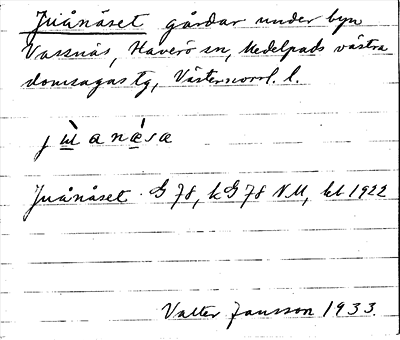 Juånäset gårdar under byn
Vassnäs, Haverö sn, Medelpads västra
domsagas tg, Västernorrl. l.
Juånäset. G 78, k G 78 NM, kl 1922
Valter Jansson 1933.